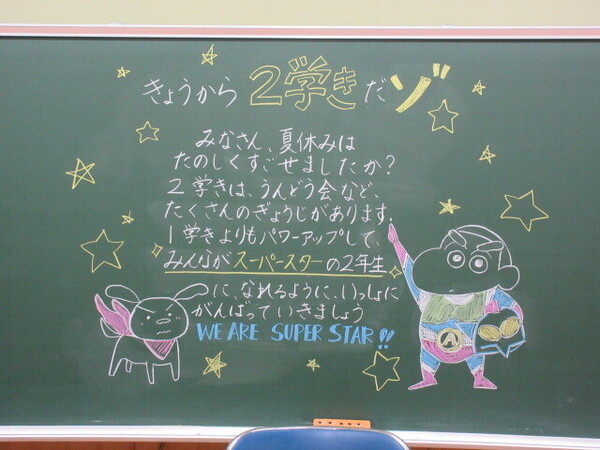 きょうから2学きだゾ
みなさん、夏休みは
たのしくすごせましたか?
2学きは、うんどう会など、
たくさんのぎょうじがあります。
1学きよりもパワーアップして、
みんながスーパースターの2年生
に、なれるように、いっしょに
がんばっていきましょう
WE ARE SUPER STAR!!
A